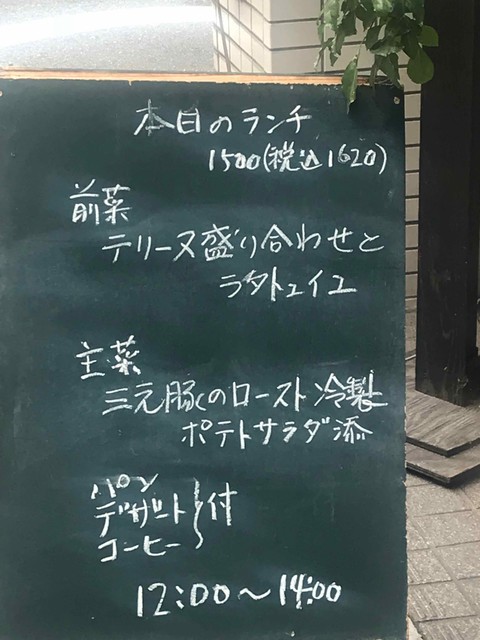 本日のランチ
1500(税込1620)
前菜
テリーヌ盛り合わせと
ラタトュイユ
主菜
三元豚のロースト冷製
ポテトサラダ添
パン
デザート
コーヒー
付
12:00〜14:00